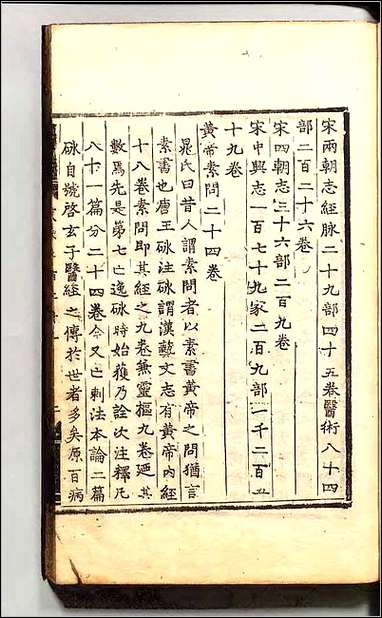 宋兩朝志經脉二十九部四十五卷醫術八十四
部二百二十六卷
宋四朝志三十六部二百九卷
宋中興志一百七十九家二百九部一千二百五
十九卷
黃帝素問二十四卷
晁氏曰昔人謂素問者以素書黃帝之問猶言
素書也唐王砅注砅謂漢藝文志有黃帝內經
十八卷素問即其經之九卷兼靈樞九卷廼其
數焉先是第七亡逸砅時始獲乃詮次注釋凡
八十一篇分二十四卷今又亡刺法本論二篇
砅自號啓玄子醫經之傳於世者多矣原百病